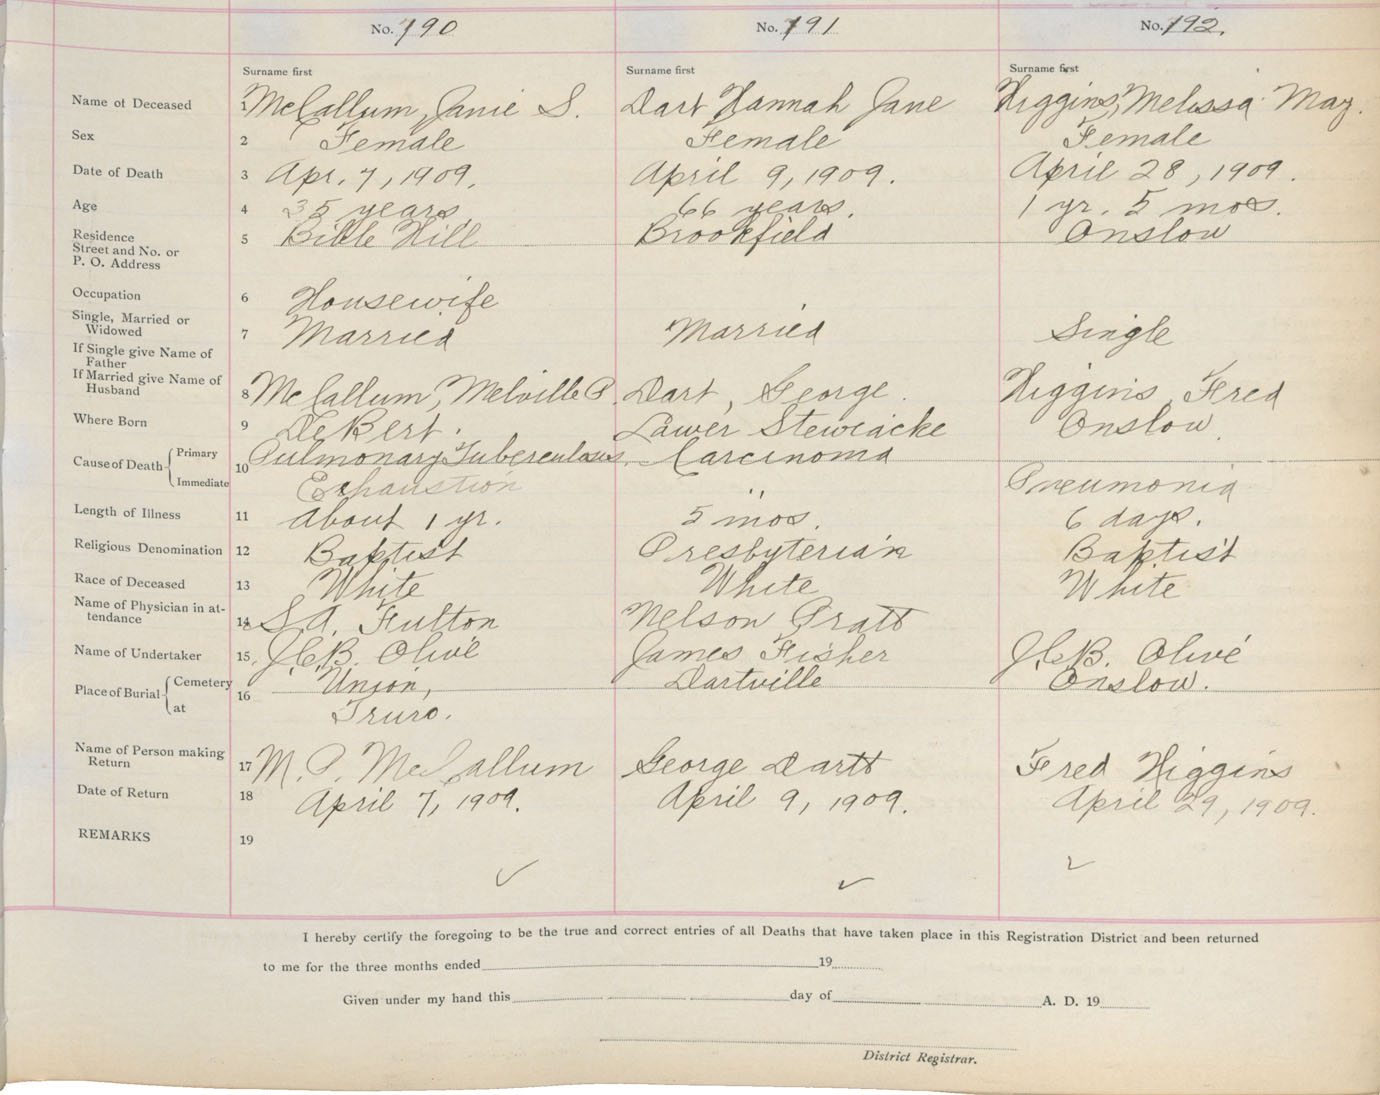 No. 190 No. 191 No. 192.
Surname first Surname first Surname first
Name of Deceased 1 McCallum, Janie S. Dart Hannah Jane Higgins, Melissa May.
Sex 2 Female Female Female
Date of Death 3 Apr. 7, 1909. April 9, 1909. April 28, 1909.
Age 4 35 years 66 years. 1 yr. 5 mos.
Residence
Street and No. or
P. O. Address 5 Bible Hill Brookfield Onslow
Occupation 6 Housewife
Single, Married or
Widowed 7 Married Married Single
If Single give Name of
Father
If Married give Name of
Husband 8 McCallum, Melville P. Dart, George. Higgins, Fred
Where Born 9 DeBert. Lower Stewiacke Onslow
Cause of Death Primary 10 Pulmonary Tuberculosis. Carcinoma
Immediate Exhaustion " Pneumonia
Length of Illness 11 About 1 yr. 5 mos. 6 days.
Religious Denomination 12 Baptist Presbyterian Baptist
Race of Deceased 13 White White White
Name of Physician in at-
tendance 14 S. A. Fulton Nelson Pratt
Name of Undertaker 15 J.C.B. Olive James Fisher J.C.B. Olive
Place of Burial Cemetery 16 Union, Dartville Onslow.
at Truro.
Name of Person making
Return 17 M. P. McCallum George Dartt Fred Higgins
Date of Return 18 April 7, 1909. April 9, 1909. April 29, 1909.
REMARKS 19
I hereby certify the foregoing to be the true and correct entries of all Deaths that have taken place in this Registration District and been returned
to me for the three months ended 19
Given under my hand this day of A. D. 19
District Registrar.